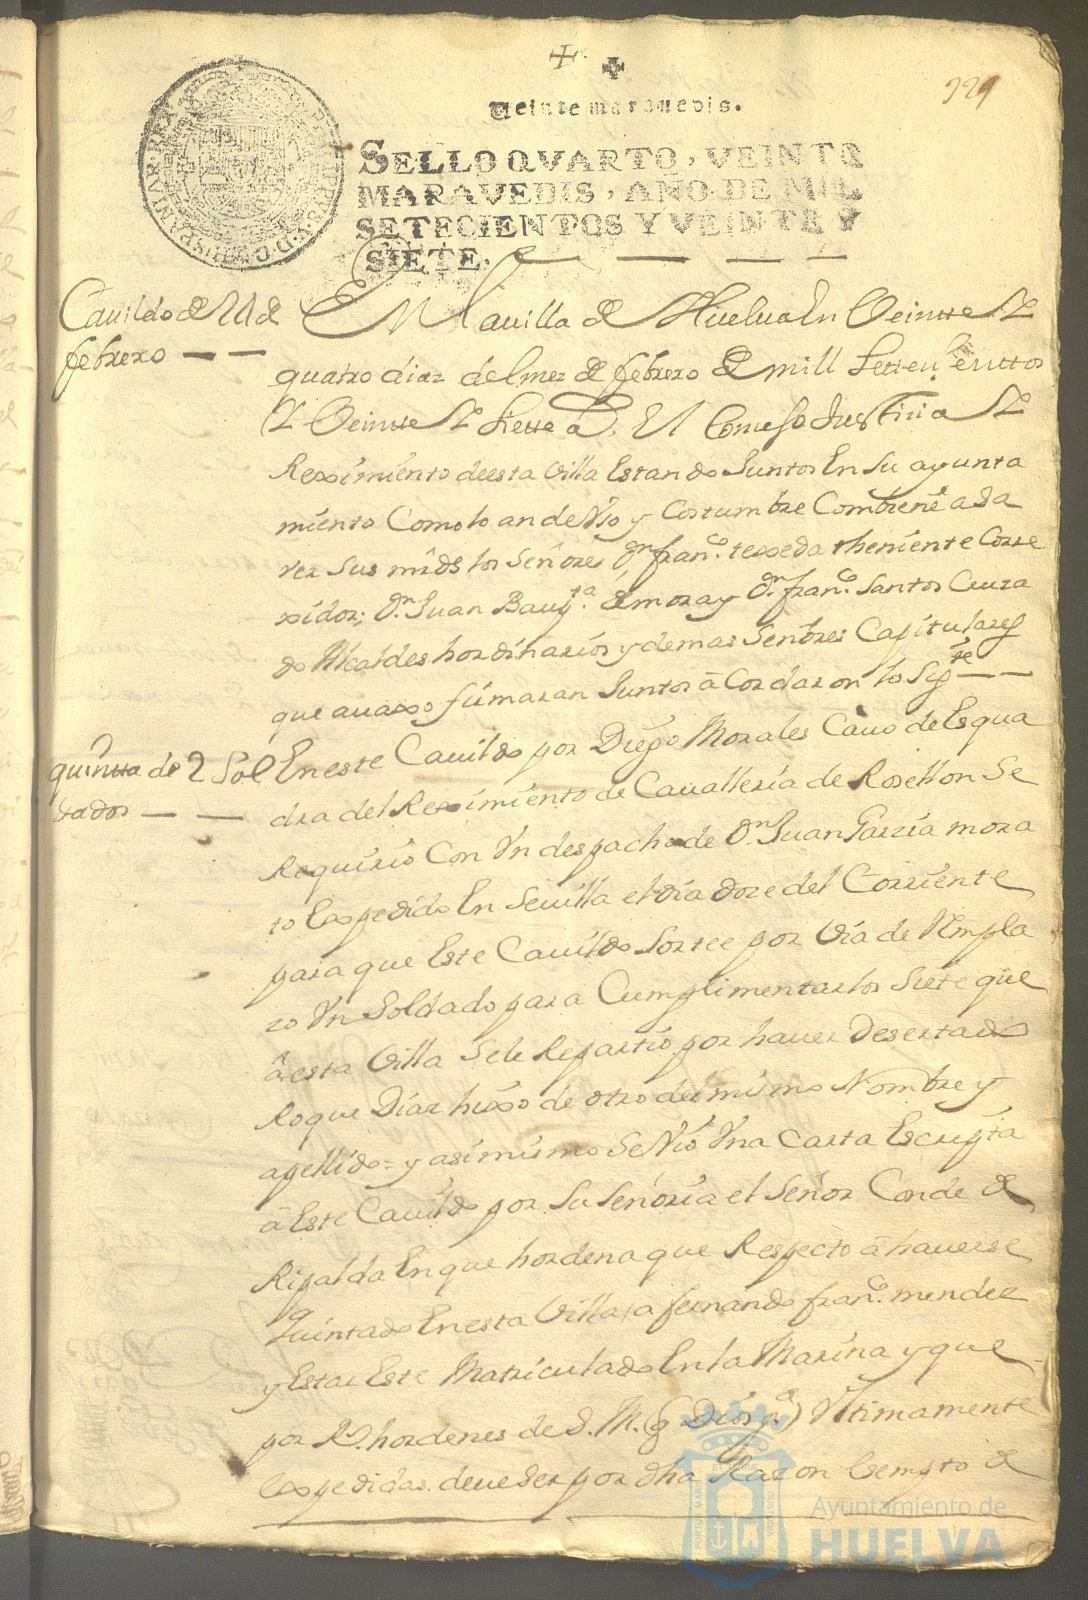 329
Veinte maravedis.
SELLO QVARTO, VEINTE
MARAVEDIS, AÑO DE MIL
SETECIENTOS Y VEINTE Y
SIETE.
Cauildo de 24 de
febrero
En la uilla de Huelua En Veintte y
quatro dias del mes de febrero de mill Settezienttos
y Veintte y Siette as. El Consejo Justizia y
Reximiento deesta Villa Estando Juntos En su ayunta
miento Como lo an de Vso y Costumbre Combiene a sa
ver sus mrds los Señores Dn. franco. texeda theniente Corre
xidor; Dn. Juan Baupta. de mora y Dn. franco. Santos Cruza
do Alcaldes hordinarios y demas Señores Capitulares
que auaxo firmaran Juntos acordaron lo Sigte
quintta de 2 Sol
dados
En este Cauildo por Diego Morales Cauo de Esqua
dra del Reximiento de Cauallería de Rosellon Se
Requirio Con Vn despacho de Dn. Juan Garzia mora
to Expedido En Seuilla el dia doze del Corriente
para que Este Cauildo Sortee por Via de Rempla
zo Vn Soldado para Cumplimentar los Siete que
a esta Villa Sele Repartio por hauer Desertado
Roque Diaz hixo de otro del mismo Nombre y
apellido = y asimismo Se Vio Vna Carta Escripta
a Este Cauildo por Su Señoria el Señor Conde de
Ripalda En que hordena que Respecto a hauerse
quintado En esta Villa a fernando franco. mendez
y Estar Este Matriculado En la Marina y que
por Rs. hordenes de S. M. (q Dios ge.) Vltimamente
Expedidas deue ser por dha Razon Exempto de
PORTUS MARIS
CUSTODIA
Ayuntamiento de
HUELVA